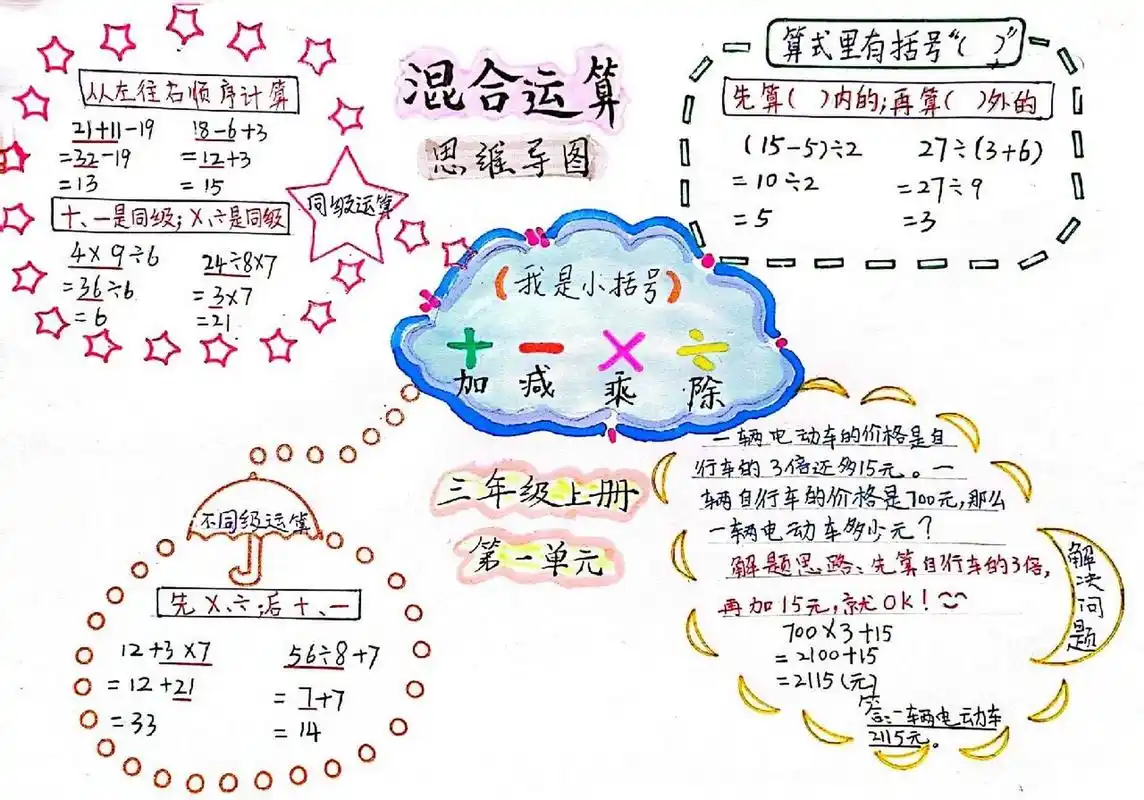 混合运算
思维导图
从左往右顺序计算
21+11-19
=32-19
=13
18-6+3
=12+3
=15
同级运算
十、一是同级;×、÷是同级
4×9÷6
=36÷6
=6
24÷8×7
=3×7
=21
算式里有括号“( )”
先算( )内的;再算( )外的
(15-5)÷2
=10÷2
=5
27÷(3+6)
=27÷9
=3
(我是小括号)
+ - × ÷
加 减 乘 除
三年级上册
第一单元
不同级运算
先×、÷;后十、一
12+3×7
=12+21
=33
56÷8+7
=7+7
=14
一辆电动车的价格是自
行车的3倍还多15元。一
辆自行车的价格是700元,那么
一辆电动车多少元?
解题思路、先算自行车的3倍,
再加15元,就OK!
700×3+15
=2100+15
=2115(元)
答:一辆电动车
2115元。
解决问题